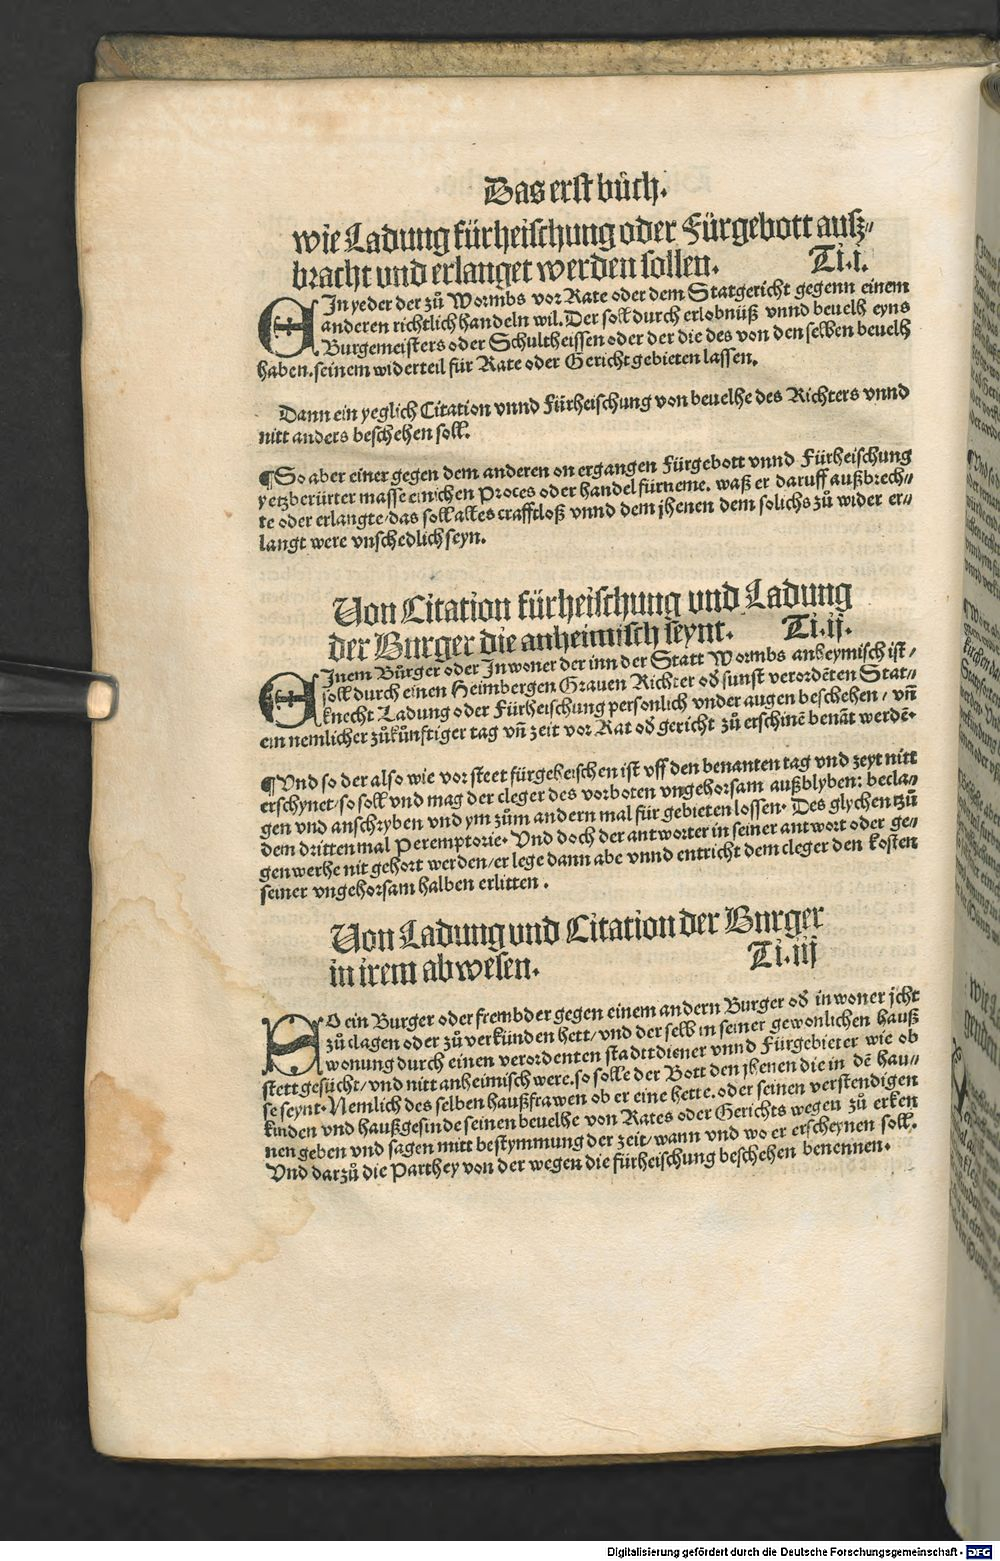 Das erst bůch.
wie Ladung fürheischung oder Fürgebott ausz⸗
bracht und erlanget werden sollen. Ti.i.
EIn yeder der zů Wormbs vor Rate oder dem Statgericht gegenn einem
anderen richtlich handeln wil. Der soll durch erlobnüß vnnd beuelh eyns
Burgemeisters oder Schultheissen oder der die des von den selben beuelh
haben. seinem widerteil für Rate oder Gericht gebieten lassen.
Dann ein yeglich Citation vnnd Fürheischung von beuelhe des Richters vnnd
nitt anders beschehen soll.
¶So aber einer gegen dem anderen on ergangen Fürgebott vnnd Fürheischung
yetzberürter masse einichen Proces oder handel fürneme. waß er daruff außbrech⸗
te oder erlangte/das soll alles crafftloß vnnd dem jhenen dem solichs zů wider er⸗
langt were vnschedlich seyn.
Von Citation fürheischung und Ladung
der Burger die anheimisch seynt. Ti.ij.
EInem Bürger oder Inwoner der inn der Statt Wormbs anheymisch ist/
soll durch einen Heimbergen Grauen Richter od̕ sunst verordēten Stat⸗
knecht Ladung oder Fürheischung persönlich vnder augen beschehen/ vñ
ein nemlicher zůkünftiger tag vñ zeit vor Rat od̕ gericht zů erschinē benāt werdē.
¶Vnd so der also wie vor steet fürgeheischen ist vff den benanten tag vnd zeyt nitt
erschynet/so soll vnd mag der cleger des vorboten vngehorsam außblyben: becla⸗
gen vnd anschryben vnd ym zům andern mal für gebieten lossen. Des glychen tzů
dem dritten mal Peremptorie. Vnd doch der antworter in seiner antwort oder ge⸗
genwerhe nit gehort werden/er lege dann abe vnnd entricht dem cleger den kosten
seiner vngehorsam halben erlitten.
Von Ladung vnd Citation der Burger
in irem abwesen. Ti.iij
SO ein Burger oder frembder gegen einem andern Burger od̕ inwoner jcht
zů clagen oder zů verkünden hett/vnd der selb in seiner gewonlichen hauß
wonung durch einen verordenten stadtdiener vnnd Fürgebieter wie ob
stett gesücht/vnd nitt anheimisch were. so solle der Bott den jhenen die in dē hau⸗
se seynt. Nemlich des selben haußfrawen ob er eine hette. oder seinen verstendigen
kinden vnd haußgesinde seinen beuelhe von Rates oder Gerichts wegen zů erken
nen geben vnd sagen mitt bestymmung der zeit/wann vnd wo er erscheynen soll.
Vnd darzů die Parthey von der wegen die fürheischung beschehen benennen.
Digitalisierung gefördert durch die Deutsche Forschungsgemeinschaft - DFG